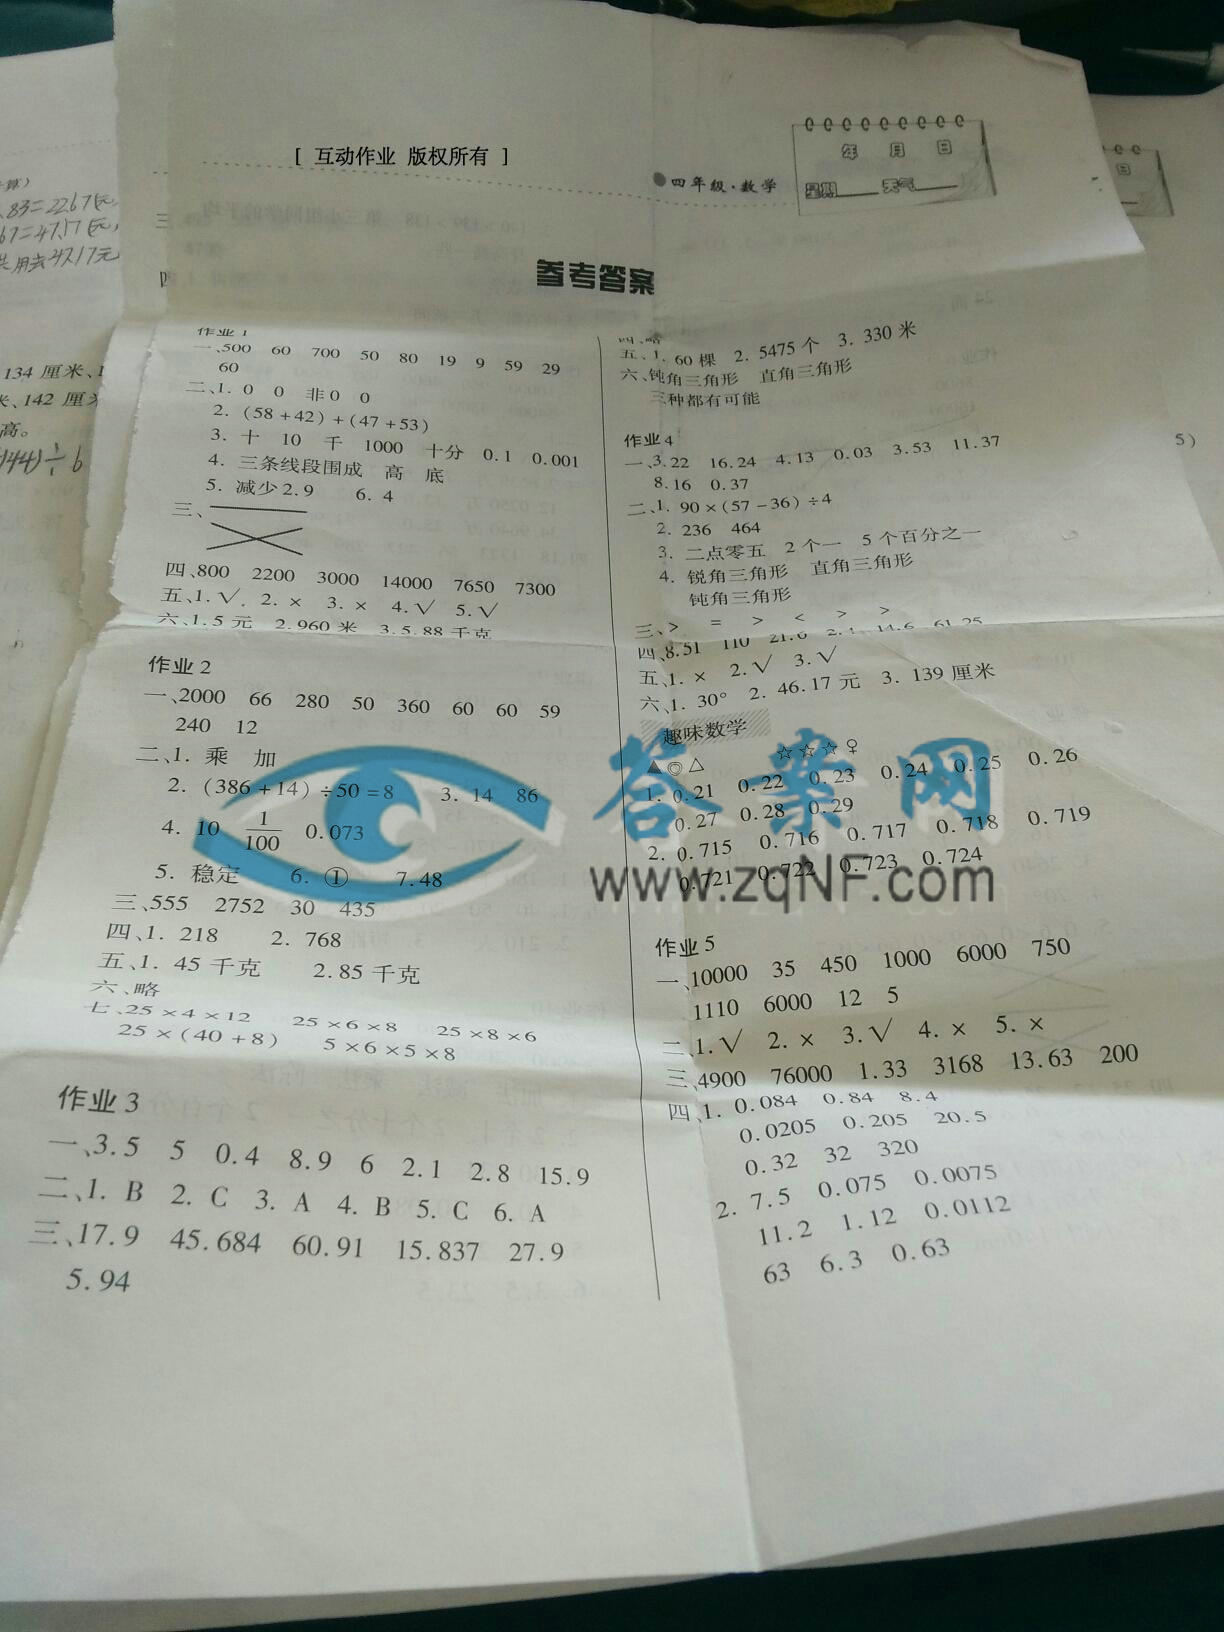 [ 互动作业 版权所有 ]
四年级·数学
年 月 日
星期 天气
参考答案
作业1
一、500 60 700 50 80 19 9 59 29
60
二、1. 0 0 非0 0
2. (58+42)+(47+53)
3. 十 10 千 1000 十分 0.1 0.001
4. 三条线段围成 高 底
5. 减少2.9 6. 4
三、
四、800 2200 3000 14000 7650 7300
五、1. √ 2. × 3. × 4. √ 5. √
六、1. 5元 2. 960米 3. 5.88千克
作业2
一、2000 66 280 50 360 60 60 59
240 12
二、1. 乘 加
2. (386+14)÷50=8 3. 14 86
4. 10 1/100 0.073
5. 稳定 6. ① 7. 48
三、555 2752 30 435
四、1. 218 2. 768
五、1. 45千克 2. 85千克
六、略
七、25×4×12 25×6×8 25×8×6
25×(40+8) 5×6×5×8
作业3
一、3.5 5 0.4 8.9 6 2.1 2.8 15.9
二、1. B 2. C 3. A 4. B 5. C 6. A
三、17.9 45.684 60.91 15.837 27.9
5.94
四、略
五、1. 60棵 2. 5475个 3. 330米
六、钝角三角形 直角三角形
三种都有可能
作业4
一、3.22 16.24 4.13 0.03 3.53 11.37
8.16 0.37
二、1. 90×(57-36)÷4
2. 236 464
3. 二点零五 2个一 5个百分之一
4. 锐角三角形 直角三角形
钝角三角形
三、> = > < > >
四、8.51 110 21.6 2.1 14.6 61.25
五、1. × 2. √ 3. √
六、1. 30° 2. 46.17元 3. 139厘米
趣味数学
▲◎△ ☆☆☆♀
1. 0.21 0.22 0.23 0.24 0.25 0.26
0.27 0.28 0.29
2. 0.715 0.716 0.717 0.718 0.719
0.721 0.722 0.723 0.724
作业5
一、10000 35 450 1000 6000 750
1110 6000 12 5
二、1. √ 2. × 3. √ 4. × 5. ×
三、4900 76000 1.33 3168 13.63 200
四、1. 0.084 0.84 8.4
0.0205 0.205 20.5
0.32 32 320
2. 7.5 0.075 0.0075
11.2 1.12 0.0112
63 6.3 0.63
答案网
www.zqNF.com
134厘米、
142厘
高。
144)÷6
.83=22.67(元)
67=47.17(元)
用去47.17元
5)
日